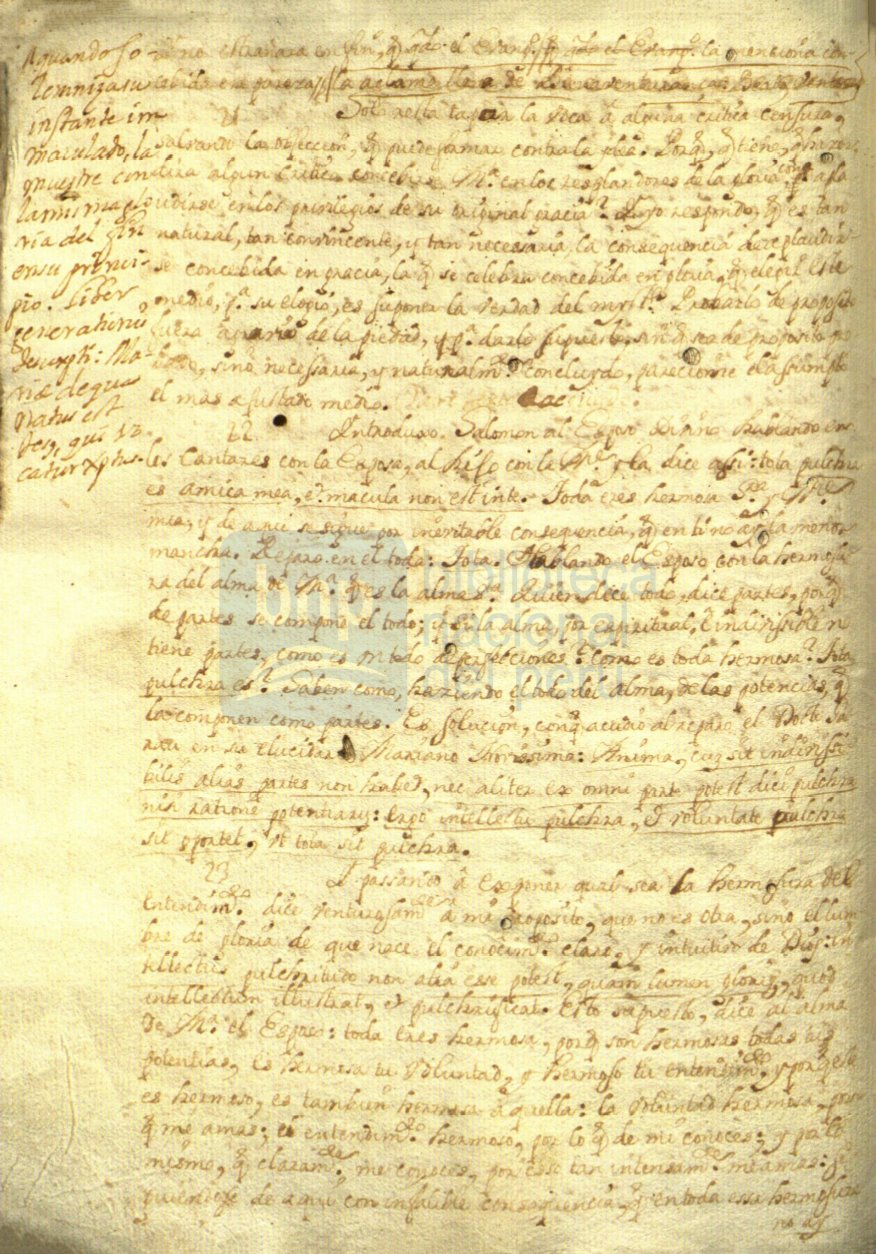 Aquando so-
lemniza su
instante im-
maculado, la
muestre con
la misma glo
ria del fin
en su princi-
pio. Liber
generationis
descripti: Ma-
riæ de qua
natus est
Jesus, qui vo
catur Xptus.
no estrañara en fin, q̃ el Evang.º la menciona con-
cebida en pureza, la aclama llena de
21 Solo resta tapar la voca â alguna critica censura,
salvando la objeccion, q̃ puede formar contra la idea. Porq̃, q̃ tiene, q̃ hazer,
dira algun critico, concebirse M.ª en los resplandores de la gloria, con apla
udirse en los privilegios de su original gracia? Y yo respondo, q̃ es tan
natural, tan convincente, y tan necessaria la consequencia de aplaudir
se concebida en gracia, la q̃ se celebra concebida en gloria, q̃ elegir este
medio, p.ª su elogio, es suponer la verdad del mist.º Probarlo de proposito
fuera agravio de la piedad, y p.ª darlo supuesto, sin q̃ sea de proposito
sino necessaria, y naturalm.te concluydo, parecióme el assumpto
el mas ajustado medio.
22 Introduxo Salomon al Esposo Divino hablando en
los Cantares con la Esposa, al hijo con la M.e y la dice assi: tota pulchra
es amica mea, et macula non est in te. Toda eres hermosa
mia, y de aqui se sigue por inevitable consequencia, q̃ en ti no ay la menor
mancha. Reparo en el toda: Tota. Hablando el Esposo con la hermosu
ra del alma de M.ª q̃ es la alma s.ta Quien dice todo, dice partes, porq̃
de partes se compone el todo; y si la alma, por espiritual, é indivisible n
tiene partes, como es un todo de perfecciones? Como es toda hermosa? Tota
pulchra es? Saben como, haziendo el todo del alma, de las potencias, q̃
la componen como partes. Es solucion, con q̃ acudio al reparo el Doct.
en su Elucidar.º Mariano Anima, cum sit indivissi
bilis alias partes non habet, nec aliter ex omni parte potest dici pulchra
nisi ratione potentiarum: ergo intellectu pulchra, et voluntate pulchra
sit oportet, ut tota sit pulchra.
23 Y passando â exponer qual sea la hermosura del
entendim.to dice venturosam.te â mi proposito, que no es otra, sino el lum
bre de gloria de que nace el conocim.to claro, y intuitivo de Dios: in
tellectus pulchritudo non alia esse potest, quam lumen gloriæ, quod
intellectum illustrat, et pulchrificat. Esto supuesto, dice al alma
de M.ª el Esposo: toda eres hermosa, porq̃ son hermosas todas tus
potencias, es hermosa tu voluntad, y hermoso tu entendim.to y porq̃ este
es hermoso, es tambien hermosa aquella: la voluntad hermosa, por
q̃ me amas; el entendim.to hermoso, por lo q̃ de mi conoces; y por lo
mismo, q̃ claram.te me conoces, por esso tan intensam.te me amas:
de aqui con infalible consequencia, q̃ en toda essa hermosura
no ay